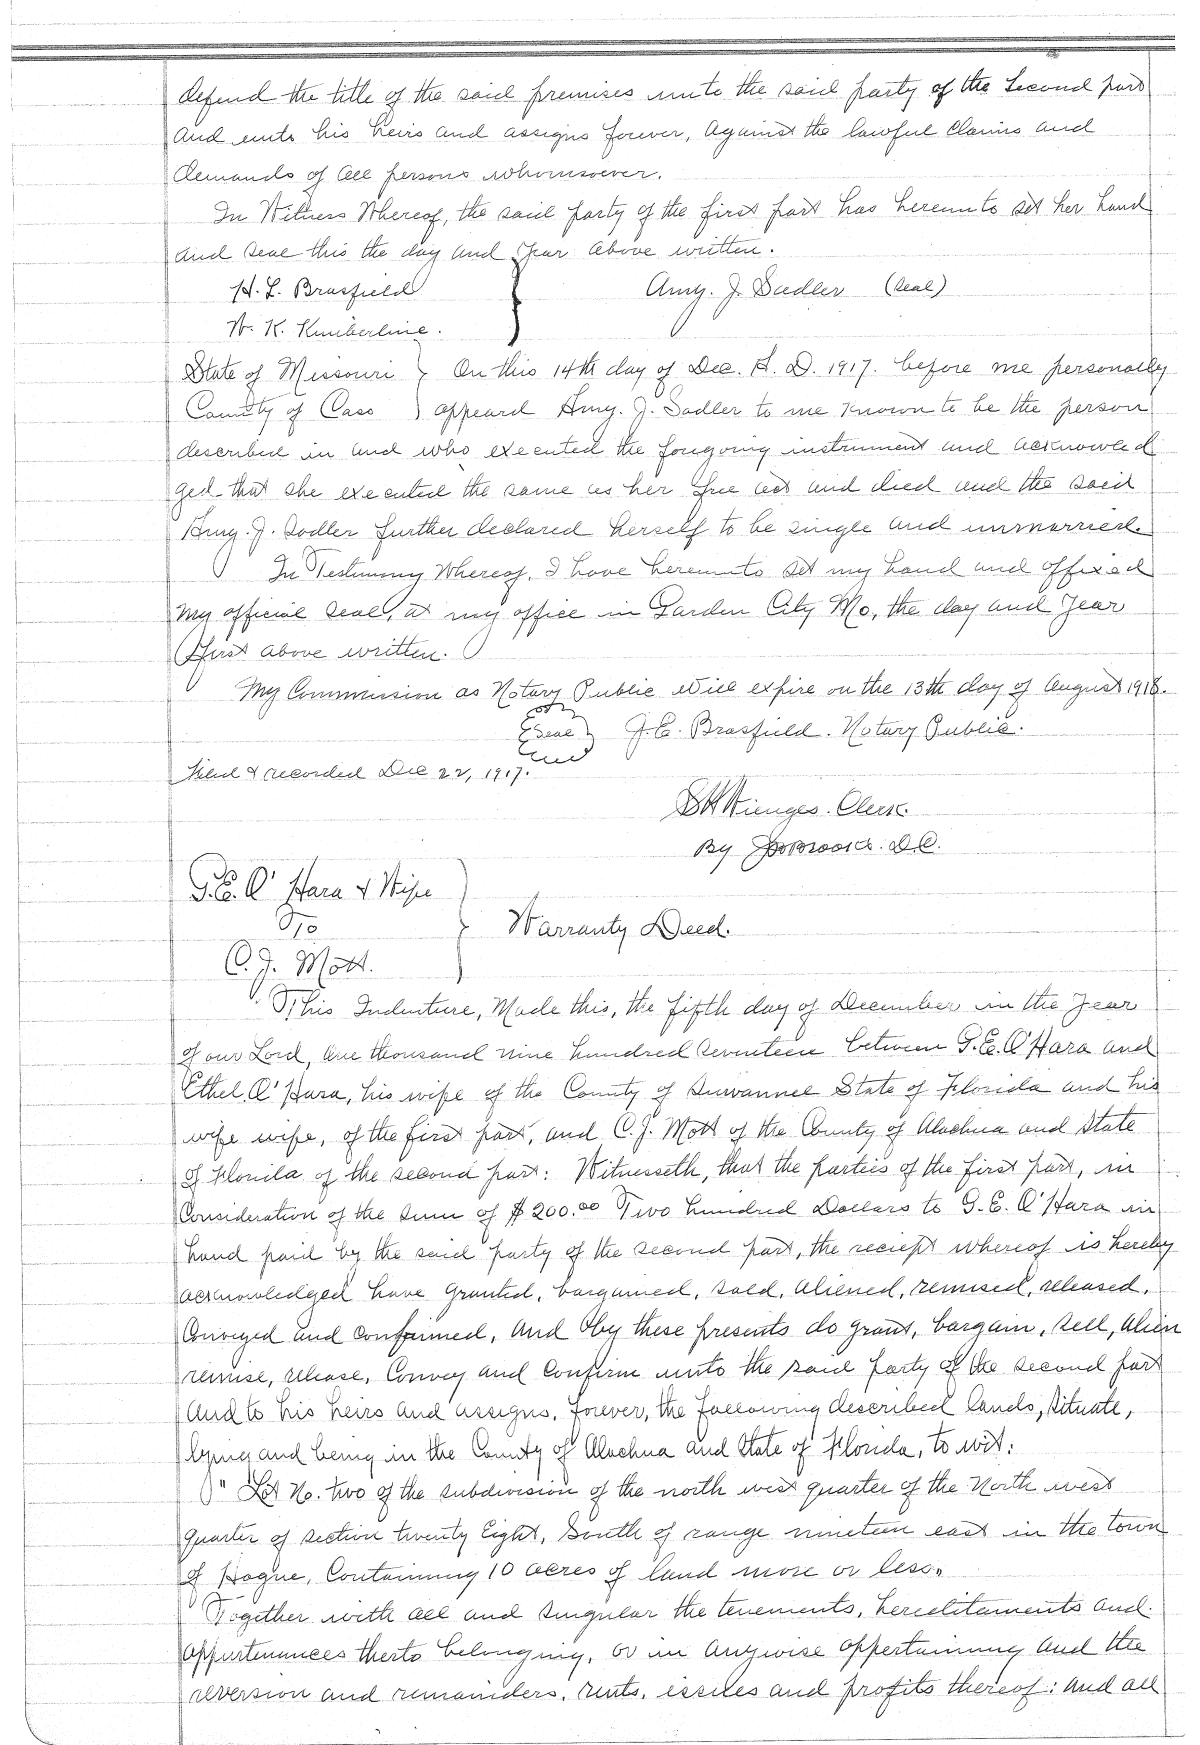 defend the title of the said premises unto the said party of the Second part
and unto his heirs and assigns forever, against the lawful claims and
demands of all persons whomsoever.
In Witness Whereof, the said party of the first part has hereunto set her hand
and seal this the day and year above written.
H. L. Brasfield } Amy. J. Sadler (Seal)
W. K. Kimberline.
State of Missouri } On this 14th day of Dec. A. D. 1917. before me personally
County of Cass ) appeard Amy. J. Sadler to me known to be the person
described in and who executed the foregoing instrument and acknowled
ged that she executed the same as her free act and died and the said
Amy. J. Sadler further declared herself to be single and unmarried.
In Testimony Whereof, I have hereunto set my hand and affixed
my official seal, at my office in Garden City Mo, the day and year
first above written.
My Commission as Notary Public will expire on the 13th day of August 1918.
Seal J. E. Brasfield. Notary Public.
Filed & recorded Dec 22, 1917.
S H Wienges. Clerk.
By D.C.
G. E. O' Hara & Wife
To } Warranty Deed.
C. J. Mott.
This Indenture, Made this, the fifth day of December in the year
of our Lord, one thousand nine hundred seventeen between G. E. O'Hara and
Ethel O' Hara, his wife of the County of Suwannee State of Florida and his
wife wife, of the first part, and C. J. Mott of the County of Alachua and State
of Florida of the second part: Witnesseth, that the parties of the first part, in
Consideration of the sum of $ 200.00 Two hundred Dollars to G. E. O'Hara in
hand paid by the said party of the second part, the reciept whereof is hereby
acknowledged have granted, bargained, sold, aliened, remised, released,
Conveyed and confirmed, and by these presents do grant, bargain, sell, alien
remise, release, Convey and Confirm unto the said party of the second part
and to his heirs and assigns, forever, the following described lands, situate,
lying and being in the County of Alachua and State of Florida, to wit:
" Lot No. two of the subdivision of the north west quarter of the North west
quarter of section twenty Eight, South of range nineteen east in the town
of Hague, Containing 10 acres of land more or less."
Together with all and singular the tenements, hereditaments and
appurtenances therto belonging, or in anywise appertaining and the
reversion and remainders, rents, issues and profits thereof: and all